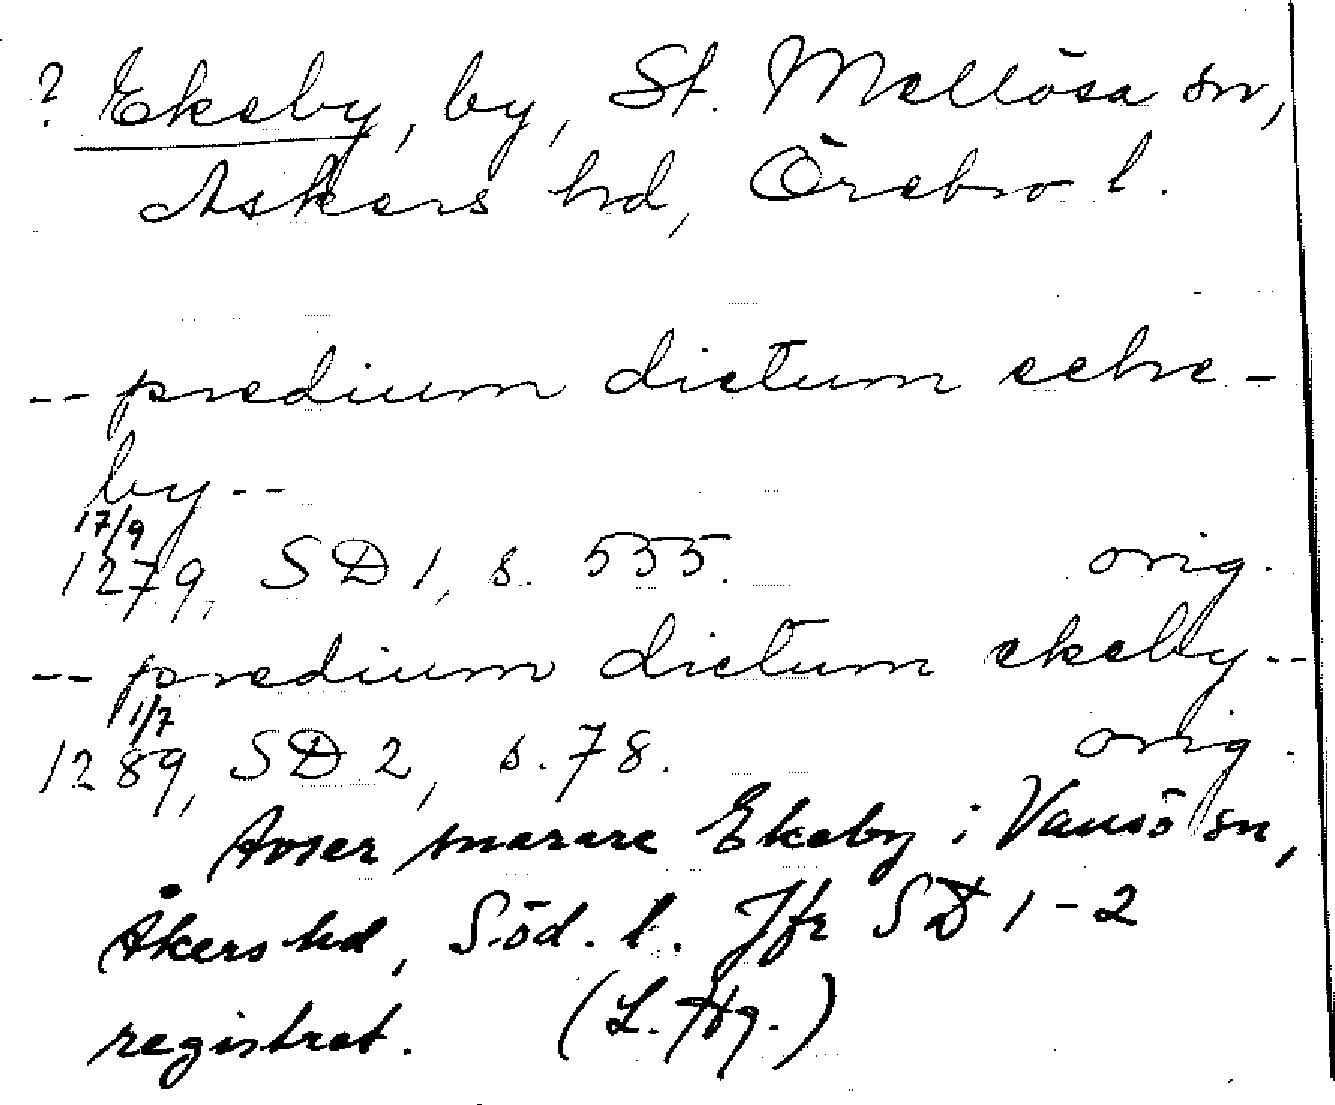 ? Ekeby, by, St. Mellösa sn,
Askers hd, Örebro l.
-- predium dictum eche-
by --
17/9
1279, SD 1, s. 555. orig.
-- predium dictum ekeby --
1/7
1289, SD 2, s. 78. orig.
Avser snarare Ekeby i Vansö sn,
Åkers hd, Söd. l. Jfr SD 1-2
registret. (L. Hg.)